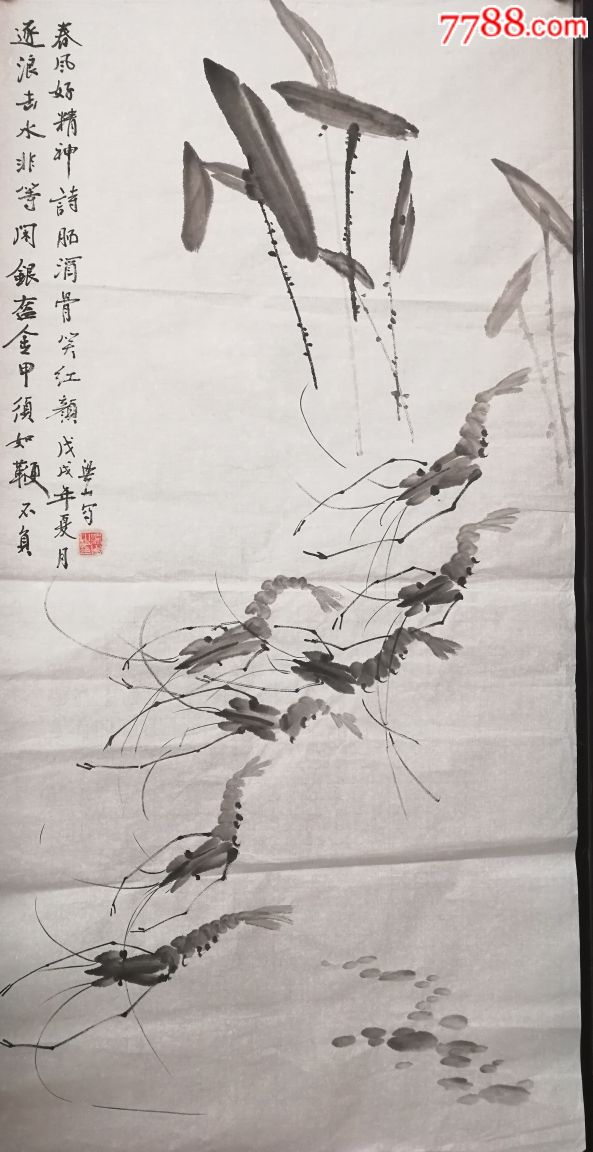 逐浪击水非等闲銀盔金甲須如鞭不負
春风好精神詩胆酒骨笑红顏戊戌年夏月
梁山写
7788.com